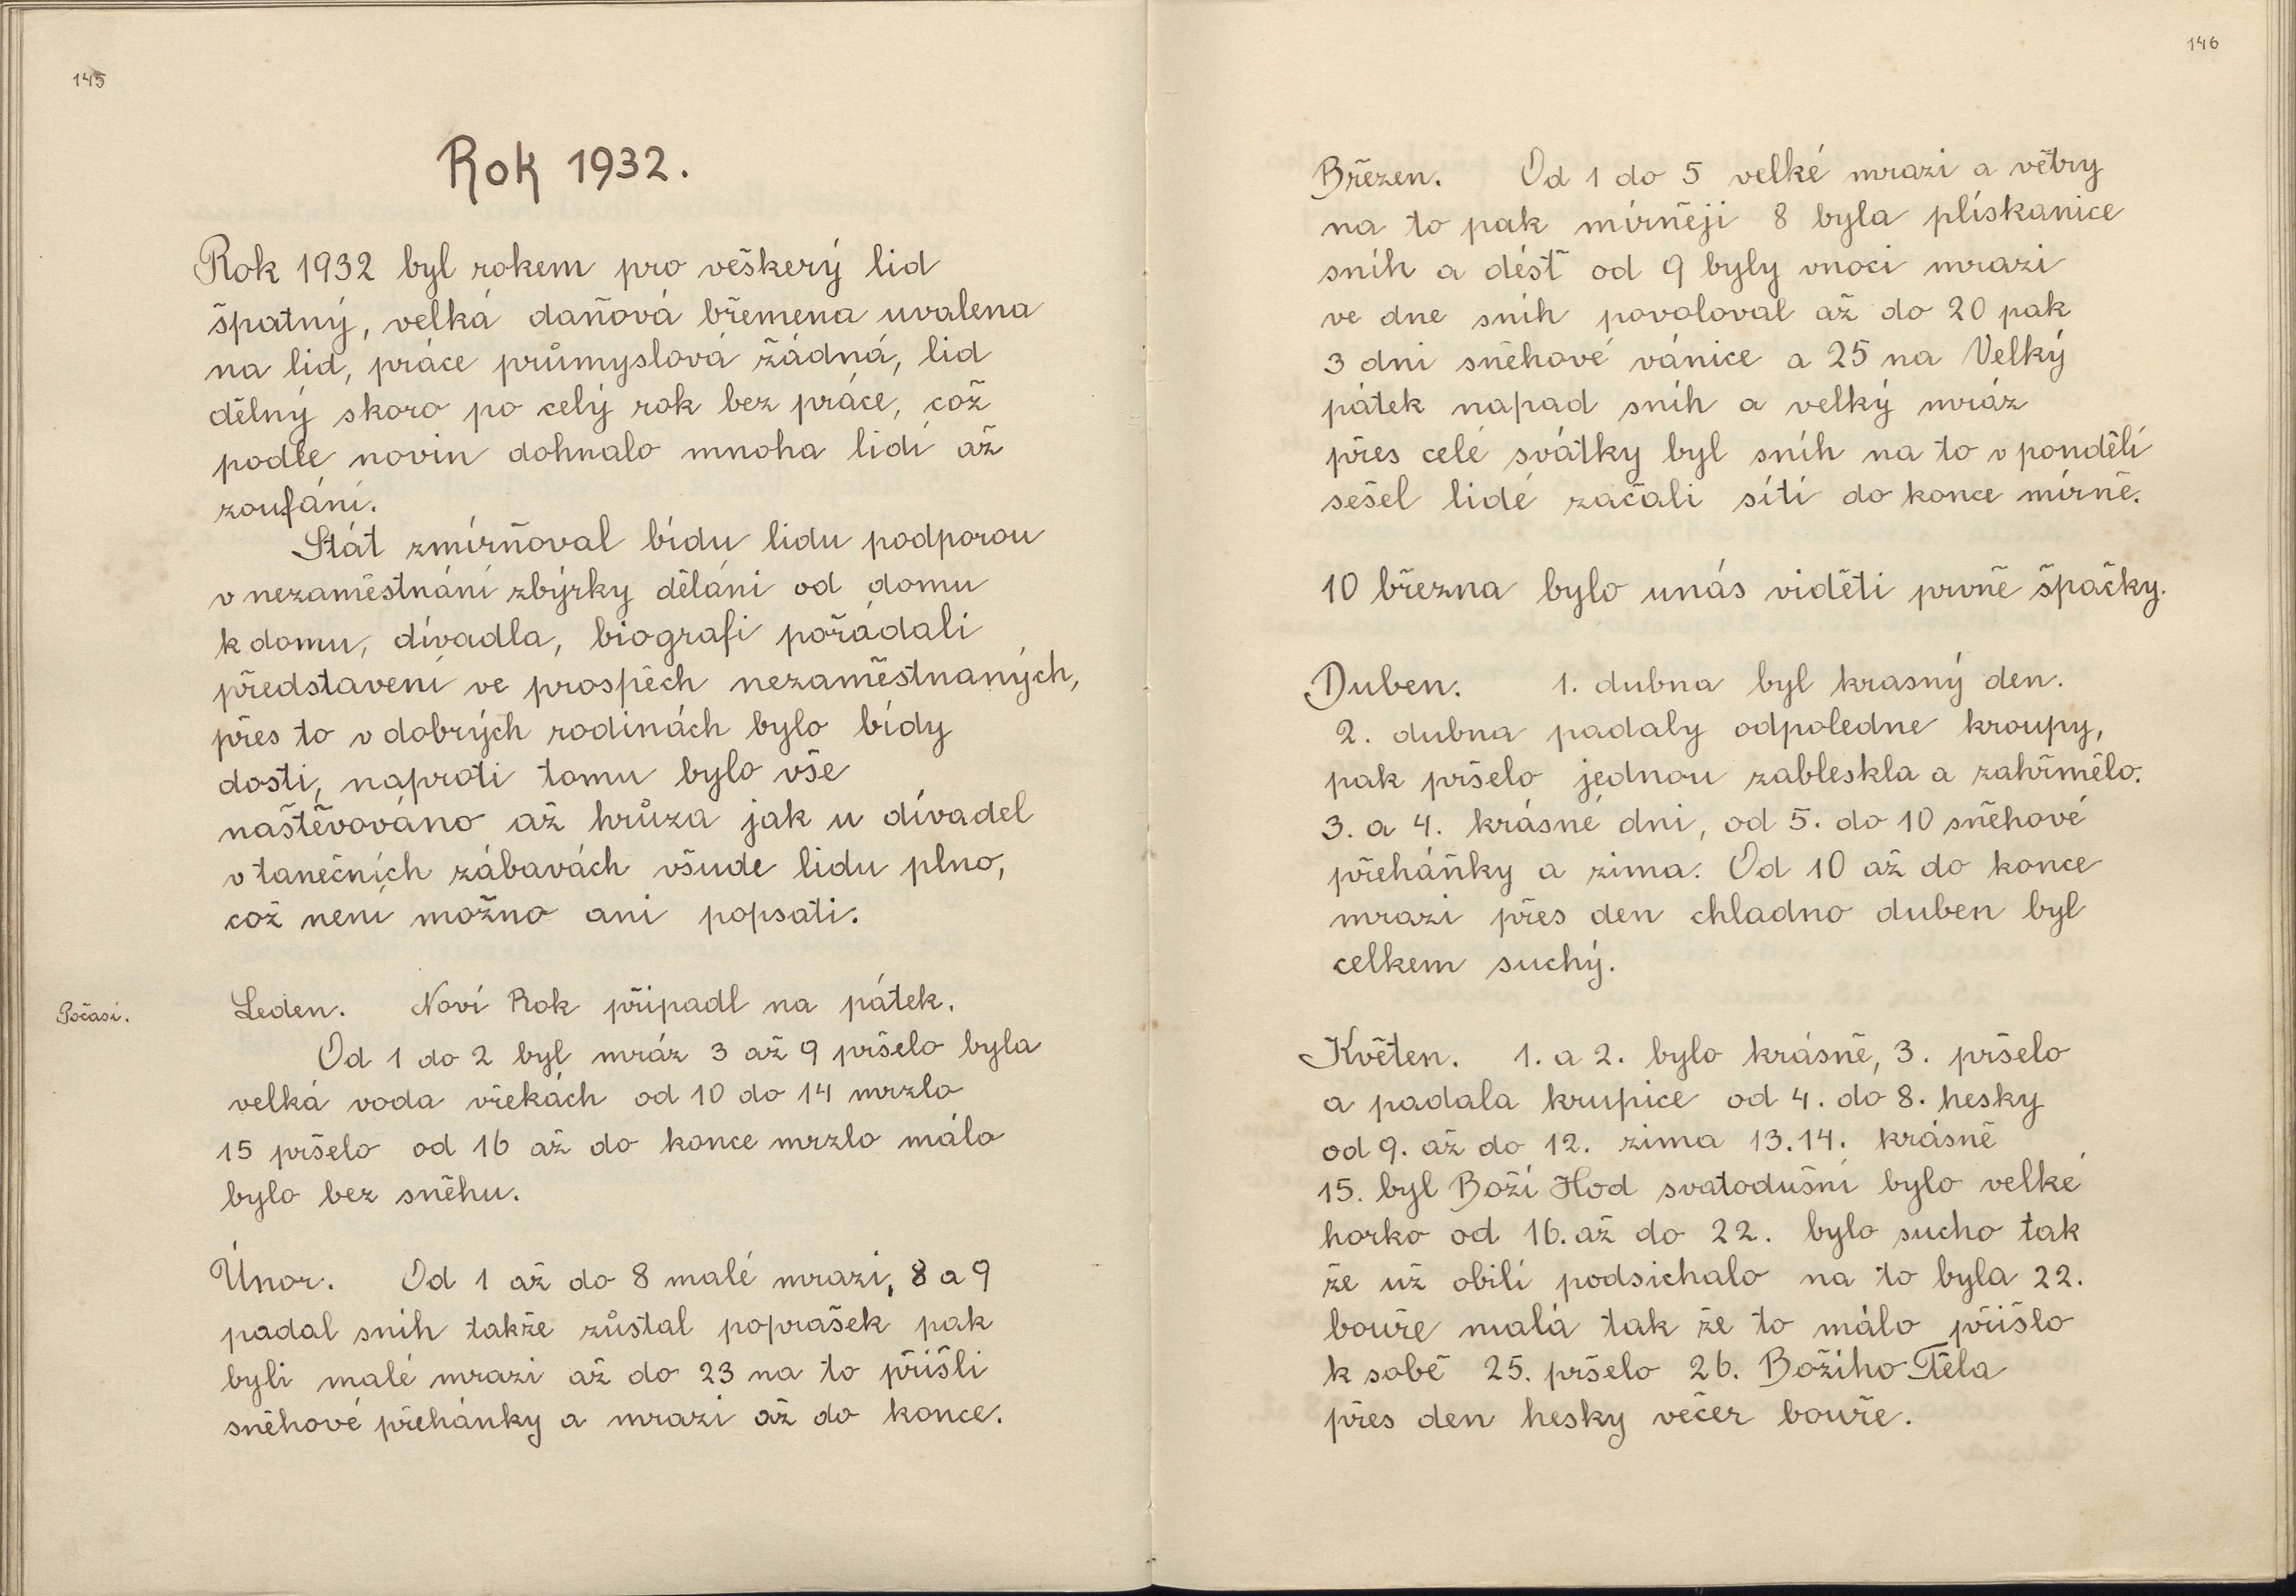 145
Rok 1932.
Rok 1932 byl rokem pro veškerý lid
špatný, velká daňová břemena uvalena
na lid, práce průmyslová žádná, lid
dělný skoro po celý rok bez práce, což
podle novin dohnalo mnoha lidí až
zoufání.
Stát zmírňoval bídu lidu podporou
v nezaměstnání zbýrky děláni od domu
k domu, dívadla, biografi pořádali
představení ve prospěch nezaměstnaných,
přes to v dobrých rodinách bylo bídy
dosti, naproti tomu bylo vše
naštěvováno až hrůza jak u dívadel
v tanečních zábavách všude lidu plno,
což není možno ani popsati.
Počasí.
Leden. Noví Rok připadl na pátek.
Od 1 do 2 byl mráz 3 až 9 pršelo byla
velká voda vřekách od 10 do 14 mrzlo
15 pršelo od 16 až do konce mrzlo málo
bylo bez sněhu.
Únor. Od 1 až do 8 malé mrazi, 8 a 9
padal sníh takže zůstal poprašek pak
byli malé mrazi až do 23 na to přišli
sněhové přehánky a mrazi až do konce.
146
Březen. Od 1 do 5 velké mrazi a větry
na to pak mírněji 8 byla plískanice
sníh a déšť od 9 byly vnoci mrazi
ve dne sníh povoloval až do 20 pak
3 dni sněhové vánice a 25 na Velký
pátek napad sníh a velký mráz
přes celé svátky byl sníh na to v pondělí
sešel lidé začali síti do konce mírně.
10 března bylo unás viděti prvně špačky.
Duben. 1. dubna byl krasný den.
2. dubna padaly odpoledne kroupy,
pak pršelo jednou zableskla a zahřmělo.
3. a 4. krásné dni, od 5. do 10 sněhové
přeháňky a zima. Od 10 až do konce
mrazi přes den chladno duben byl
celkem suchý.
Květen. 1. a 2. bylo krásně, 3. pršelo
a padala krupice od 4. do 8. hesky
od 9. až do 12. zima 13. 14. krásně
15. byl Boží Hod svatodušní bylo velké
horko od 16. až do 22. bylo sucho tak
že už obilí podsichalo na to byla 22.
bouře malá tak že to málo přišlo
k sobě 25. pršelo 26. Božího Těla
přes den hesky večer bouře.